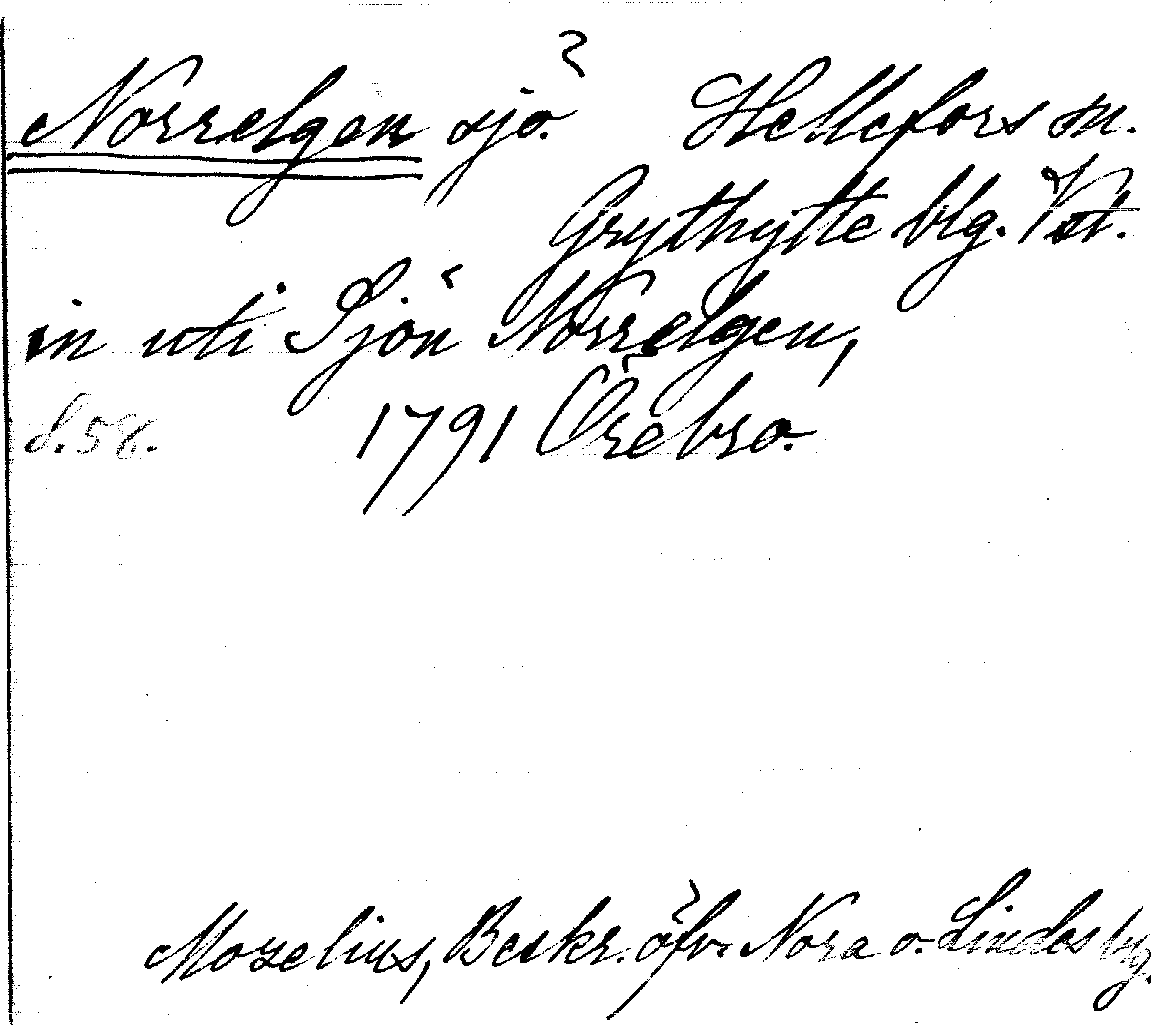 Norrelgen sjö. Hellefors sn.
Grythytte blg. Vstm.
in uti Sjön Norrelgen,
S. 58. 1791 Örebro.
Mozelius, Beskr. öfv. Nora o. Lindes blg.